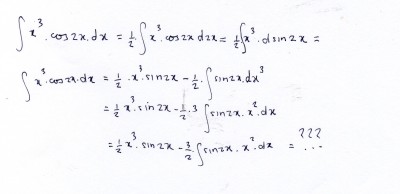 ∫x³.cos2x.dx = ½.∫x³.cos2x d2x = ½∫x³.dsin2x =
∫x³.cos2x.dx = ½.x³.sin2x - ½.∫sin2x.dx³
= ½x³.sin2x - ½.3∫sin2x.x².dx
= ½x³.sin2x - 3/2.∫sin2x.x².dx = ???...